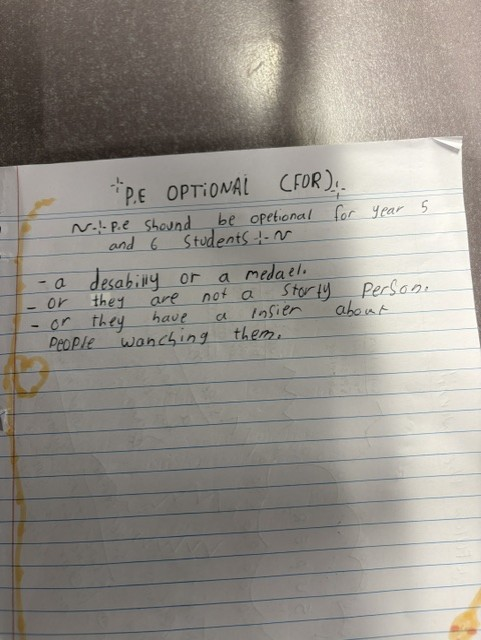 P.E OPTIONAL (FOR)
P.e shound be opetional for year 5
and 6 students
- a desabilly or a medael.
- or they are not a storty person.
- or they have a insier about
people wanching them.